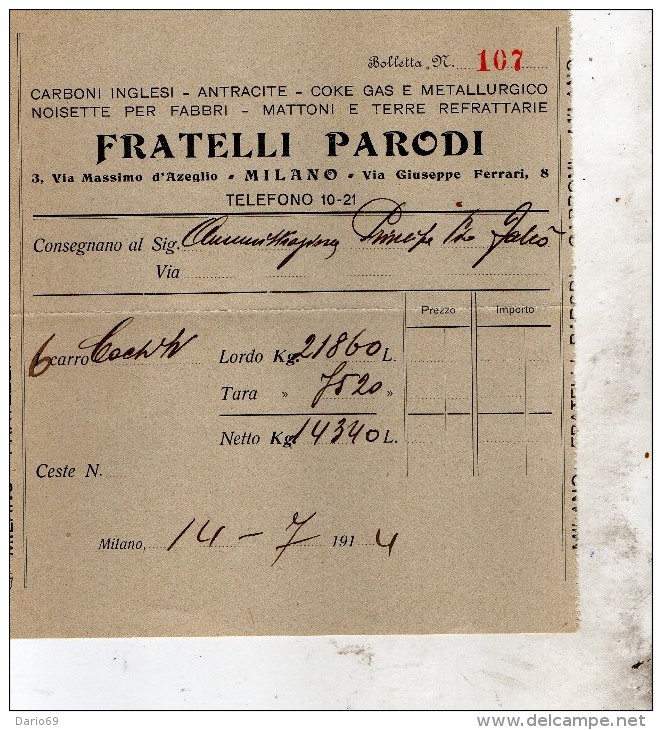 Bolletta N. 107
CARBONI INGLESI - ANTRACITE - COKE GAS E METALLURGICO
NOISETTE PER FABBRI - MATTONI E TERRE REFRATTARIE
FRATELLI PARODI
3, Via Massimo d'Azeglio - MILANO - Via Giuseppe Ferrari, 8
TELEFONO 10-21
Consegnano al Sig. Principe Pio
Via
Prezzo Importo
6 carro Lordo Kg. 21860 L.
Tara » 7520 »
Netto Kg. 14340 L.
Ceste N.
Milano, 14 - 7 1914
MILANO - FRATELLI PARODI
Dario69
delcampe.net